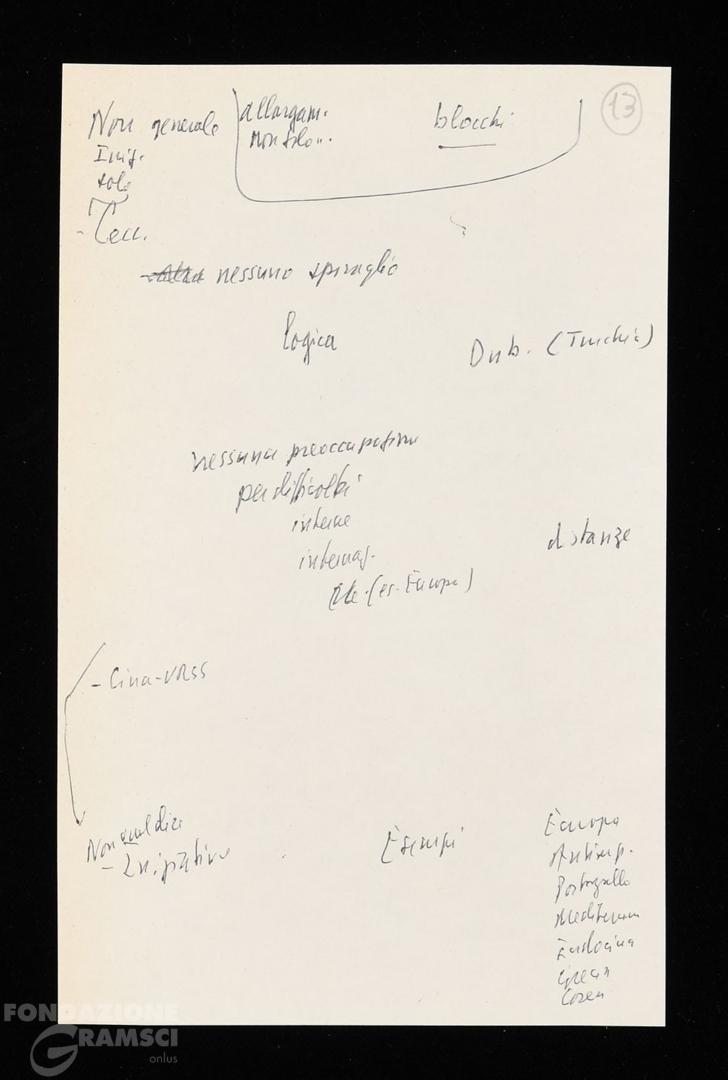 13
Non generale
allargam.
non solo..
blocchi
solo
nessuno spiraglio
logica
Dub. (Turchia)
nessuna preoccupazione
per difficoltà
interne
internaz.
(es. Europa)
distanze
- Cina-URSS
- Iniziative
Esempi
Europa
Antimp.
Portogallo
Mediterraneo
Indocina
Corea
FONDAZIONE
GRAMSCI
onlus